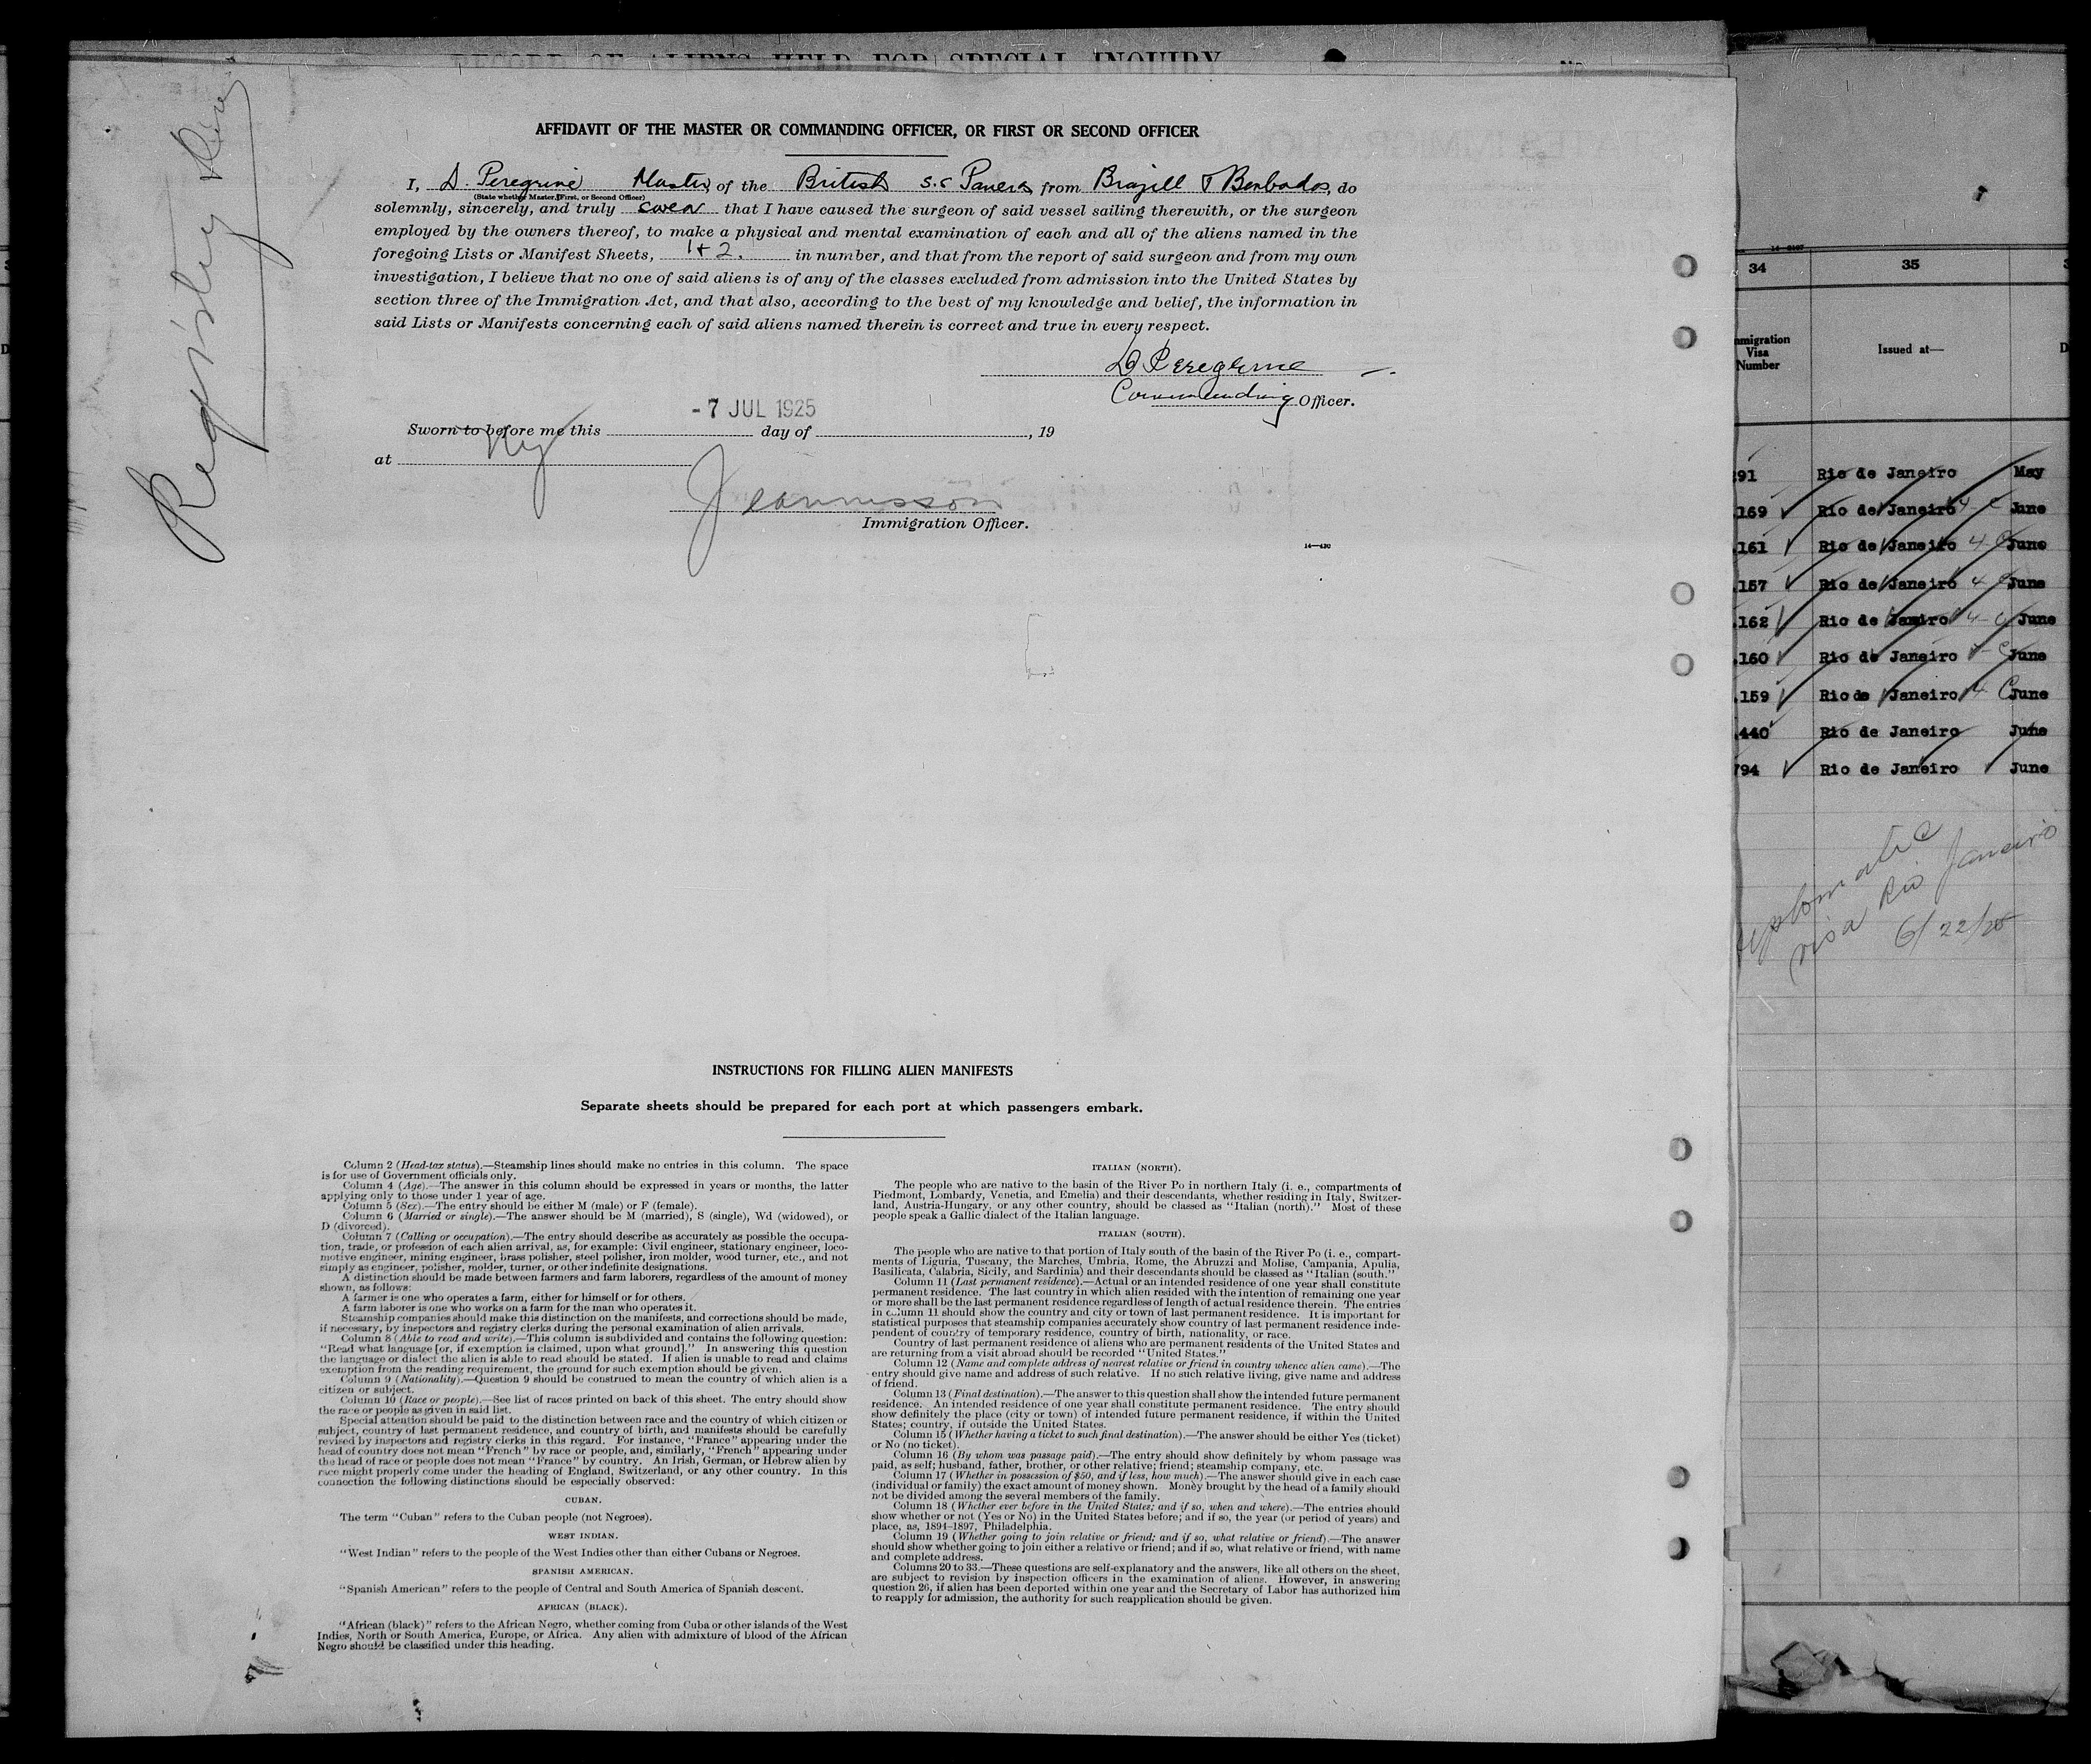 RECORD OF ALIENS HELD FOR SPECIAL INQUIRY
AFFIDAVIT OF THE MASTER OR COMMANDING OFFICER, OR FIRST OR SECOND OFFICER
I, D. Peregrine Master of the British s.s from Brazill & Barbados, do
(State whether Master, First, or Second Officer)
solemnly, sincerely, and truly swear that I have caused the surgeon of said vessel sailing therewith, or the surgeon
employed by the owners thereof, to make a physical and mental examination of each and all of the aliens named in the
foregoing Lists or Manifest Sheets, 1+2. in number, and that from the report of said surgeon and from my own
investigation, I believe that no one of said aliens is of any of the classes excluded from admission into the United States by
section three of the Immigration Act, and that also, according to the best of my knowledge and belief, the information in
said Lists or Manifests concerning each of said aliens named therein is correct and true in every respect.
D Peregrine
Commanding Officer.
- 7 JUL 1925
Sworn to before me this day of , 19
at NY
Immigration Officer.
14—430
INSTRUCTIONS FOR FILLING ALIEN MANIFESTS
Separate sheets should be prepared for each port at which passengers embark.
Column 2 (Head-tax status).—Steamship lines should make no entries in this column. The space
is for use of Government officials only.
Column 4 (Age).—The answer in this column should be expressed in years or months, the latter
applying only to those under 1 year of age.
Column 5 (Sex).—The entry should be either M (male) or F (female).
Column 6 (Married or single).—The answer should be M (married), S (single), Wd (widowed), or
D (divorced).
Column 7 (Calling or occupation).—The entry should describe as accurately as possible the occupa-
tion, trade, or profession of each alien arrival, as, for example: Civil engineer, stationary engineer, loco-
motive engineer, mining engineer, brass polisher, steel polisher, iron molder, wood turner, etc., and not
simply as engineer, polisher, molder, turner, or other indefinite designations.
A distinction should be made between farmers and farm laborers, regardless of the amount of money
shown, as follows:
A farmer is one who operates a farm, either for himself or for others.
A farm laborer is one who works on a farm for the man who operates it.
Steamship companies should make this distinction on the manifests, and corrections should be made,
if necessary, by inspectors and registry clerks during the personal examination of alien arrivals.
Column 8 (Able to read and write).—This column is subdivided and contains the following question:
"Read what language [or, if exemption is claimed, upon what ground]." In answering this question
the language or dialect the alien is able to read should be stated. If alien is unable to read and claims
exemption from the reading requirement, the ground for such exemption should be given.
Column 9 (Nationality).—Question 9 should be construed to mean the country of which alien is a
citizen or subject.
Column 10 (Race or people).—See list of races printed on back of this sheet. The entry should show
the race or people as given in said list.
Special attention should be paid to the distinction between race and the country of which citizen or
subject, country of last permanent residence, and country of birth, and manifests should be carefully
revised by inspectors and registry clerks in this regard. For instance, "France" appearing under the
head of country does not mean "French" by race or people, and, similarly, "French" appearing under
the head of race or people does not mean "France" by country. An Irish, German, or Hebrew alien by
race might properly come under the heading of England, Switzerland, or any other country. In this
connection the following distinctions should be especially observed:
CUBAN.
The term "Cuban" refers to the Cuban people (not Negroes).
WEST INDIAN.
"West Indian" refers to the people of the West Indies other than either Cubans or Negroes.
SPANISH AMERICAN.
"Spanish American" refers to the people of Central and South America of Spanish descent.
AFRICAN (BLACK).
"African (black)" refers to the African Negro, whether coming from Cuba or other islands of the West
Indies, North or South America, Europe, or Africa. Any alien with admixture of blood of the African
Negro should be classified under this heading.
ITALIAN (NORTH).
The people who are native to the basin of the River Po in northern Italy (i. e., compartments of
Piedmont, Lombardy, Venetia, and Emelia) and their descendants, whether residing in Italy, Switzer-
land, Austria-Hungary, or any other country, should be classed as "Italian (north)." Most of these
people speak a Gallic dialect of the Italian language.
ITALIAN (SOUTH).
The people who are native to that portion of Italy south of the basin of the River Po (i. e., compart-
ments of Liguria, Tuscany, the Marches, Umbria, Rome, the Abruzzi and Molise, Campania, Apulia,
Basilicata, Calabria, Sicily, and Sardinia) and their descendants should be classed as "Italian (south."
Column 11 (Last permanent residence).—Actual or an intended residence of one year shall constitute
permanent residence. The last country in which alien resided with the intention of remaining one year
or more shall be the last permanent residence regardless of length of actual residence therein. The entries
in column 11 should show the country and city or town of last permanent residence. It is important for
statistical purposes that steamship companies accurately show country of last permanent residence inde-
pendent of country of temporary residence, country of birth, nationality, or race.
Country of last permanent residence of aliens who are permanent residents of the United States and
are returning from a visit abroad should be recorded "United States."
Column 12 (Name and complete address of nearest relative or friend in country whence alien came).—The
entry should give name and address of such relative. If no such relative living, give name and address
of friend.
Column 13 (Final destination).—The answer to this question shall show the intended future permanent
residence. An intended residence of one year shall constitute permanent residence. The entry should
show definitely the place (city or town) of intended future permanent residence, if within the United
States; country, if outside the United States.
Column 15 (Whether having a ticket to such final destination).—The answer should be either Yes (ticket)
or No (no ticket).
Column 16 (By whom was passage paid).—The entry should show definitely by whom passage was
paid, as self; husband, father, brother, or other relative; friend; steamship company, etc.
Column 17 (Whether in possession of $50, and if less, how much).—The answer should give in each case
(individual or family) the exact amount of money shown. Money brought by the head of a family should
not be divided among the several members of the family.
Column 18 (Whether ever before in the United States; and if so, when and where).—The entries should
show whether or not (Yes or No) in the United States before; and if so, the year (or period of years) and
place, as, 1894-1897, Philadelphia.
Column 19 (Whether going to join relative or friend; and if so, what relative or friend).—The answer
should show whether going to join either a relative or friend; and if so, what relative or friend, with name
and complete address.
Columns 20 to 33.—These questions are self-explanatory and the answers, like all others on the sheet,
are subject to revision by inspection officers in the examination of aliens. However, in answering
question 26, if alien has been deported within one year and the Secretary of Labor has authorized him
to reapply for admission, the authority for such reapplication should be given.
34 35
mmigration
Visa
Number
Issued at—
D
91 Rio de Janeiro May
169 Rio de Janeiro 4-C June
161 Rio de Janeiro 4-C June
157 Rio de Janeiro 4-C June
162 Rio de Janiro 4-C June
160 Rio de Janeiro 4-C June
159 Rio de Janeiro 4 C June
440 Rio de Janeiro June
794 Rio de Janeiro June
diplomatic
visa Rio Janeiro
6/22/25